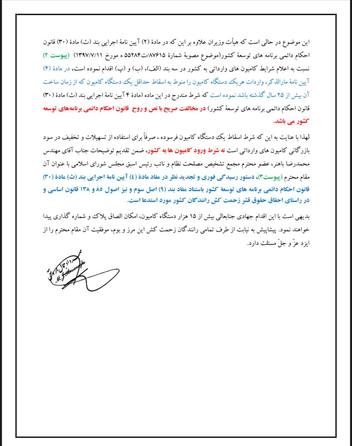 این موضوع در حالی است که هیأت وزیران علاوه بر این که در مادۀ (۲) آیین نامۀ اجرایی بند (ث) مادۀ (۳۰) قانون
احکام دائمی برنامه های توسعۀ کشور(موضوع مصوبۀ شمارۀ ۸۷۶۱۵/ت۵۵۲۸۴ ه مورخ ۱۳۹۷/۷/۱۱) (پیوست ۲)
نسبت به اعلام شرایط کامیون های وارداتی به کشور در سه بند (الف)، (ب) و (پ) اقدام نموده است، در مادۀ (۴)
آیین نامۀ مارالذکر، واردات هر یک دستگاه کامیون را منوط به اسقاط حداقل یک دستگاه کامیون که از زمان ساخت
آن بیش از ۲۵ سال گذشته باشد نموده است که شرط مندرج در این ماده (مادۀ ۴ آیین نامۀ اجرایی بند (ث) مادۀ (۳۰)
قانون احکام دائمی برنامه های توسعۀ کشور) در مخالفت صریح با نص و روح قانون احکام دائمی برنامه‌های توسعه
کشور می باشد.
لهذا با عنایت به این که شرط اسقاط یک دستگاه کامیون فرسوده ، صرفاً برای استفاده از تسهیلات و تخفیف در سود
بازرگانی کامیون های وارداتی است نه شرط ورود کامیون ها به کشور، ضمن تقدیم توضیحات جناب آقای مهندس
محمدرضا باهنر، عضو محترم مجمع تشخیص مصلحت نظام و نائب رئیس اسبق مجلس شورای اسلامی با عنوان آن
مقام محترم (پیوست۳)، دستور رسیدگی فوری و تجدید نظر در مفاد مادۀ (٤) آیین نامۀ اجرایی بند (ث) مادۀ (۳۰)
قانون احکام دائمی برنامه های توسعه کشور باستناد مفاد بند (۹) اصل سوم و نیز اصول ۸۵ و ۱۳۸ قانون اساسی و
در راستای احقاق حقوق قشر زحمت کش رانندگان کشور مورد استدعا است.
بدیهی است با این اقدام جهادی جنابعالی بیش از ۱۵ هزار دستگاه کامیون، امکان الصاق پلاک و شماره گذاری پیدا
خواهند نمود. پیشاپیش به نیابت از طرف تمامی رانندگان زحمت کش این مرز و بوم، موفقیت آن مقام محترم را از
ایزد عزّ و جلّ مسئلت دارد.